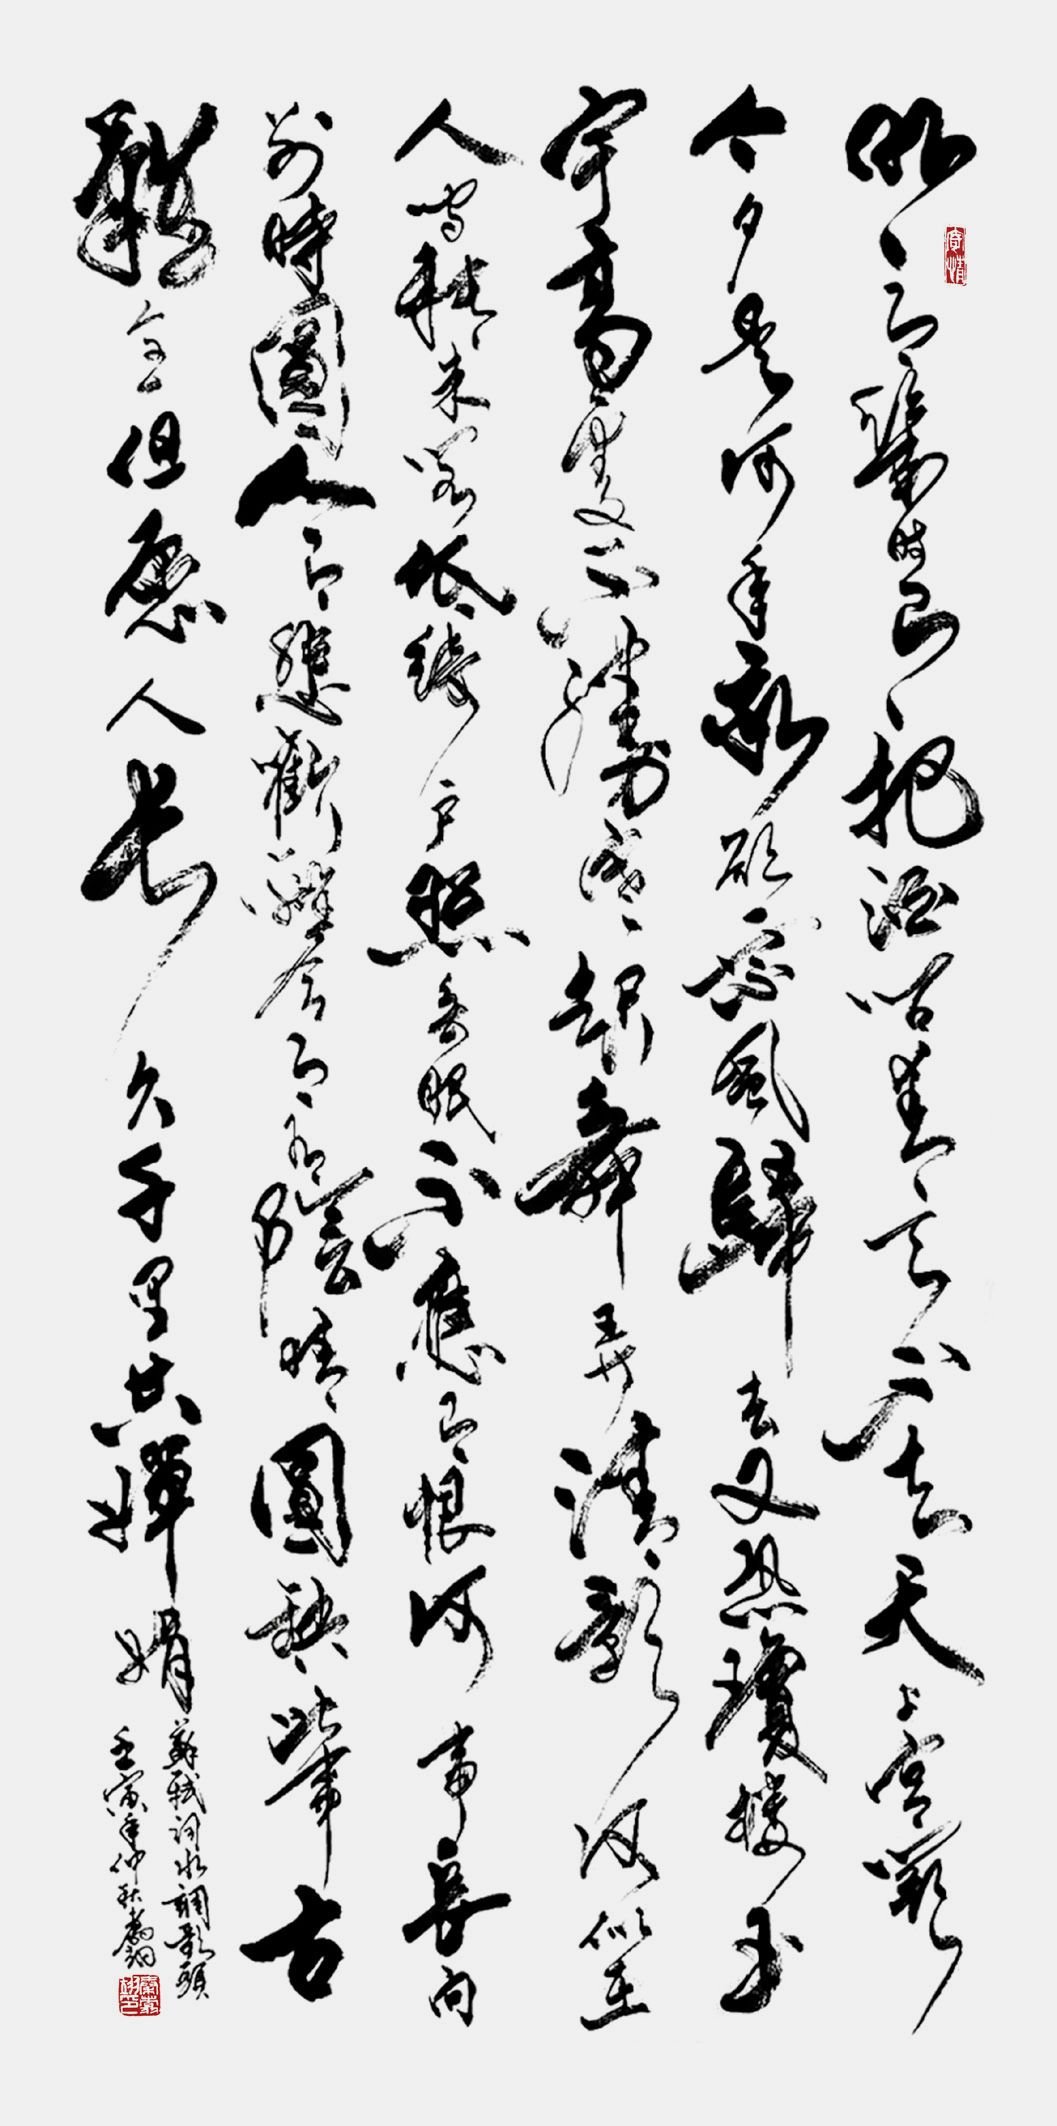 寄情
明月幾時有把酒問青天不知天上宮闕
今夕是何年我欲乘風歸去又恐瓊樓玉
宇高處不勝寒起舞弄清影何似在
人間轉朱閣低綺戶照無眠不應有恨何事長向
別時圓人有悲歡離合月有陰晴圓缺此事古
難全但愿人長久千里共嬋娟
蘇軾詞水調歌頭
壬寅年仲秋